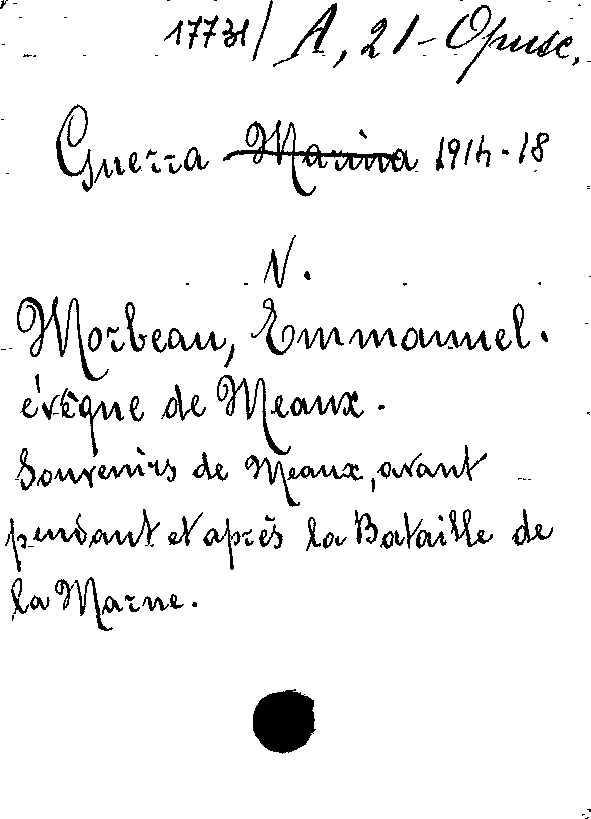 17731/ A, 21-Opusc.
Guerra Marina 1914-18
N.
Morbeau, Emmanuel.
évêque de Meaux.
Souvenirs de Meaux, avant
pendant et après la Bataille de
la Marne.